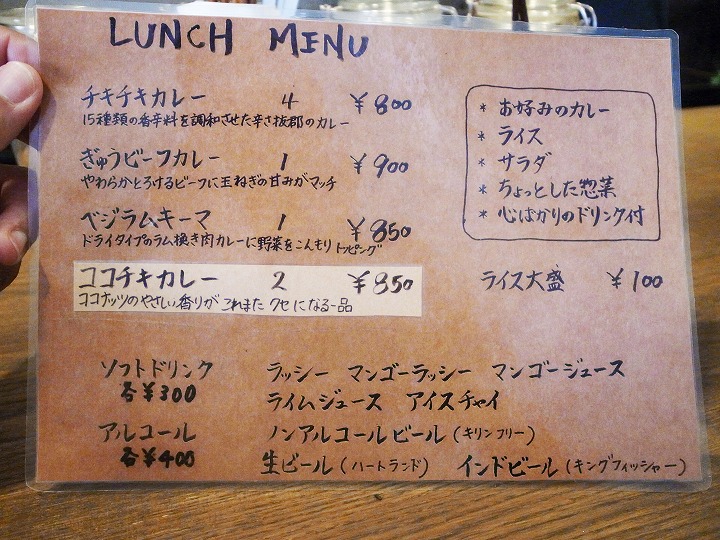 LUNCH MENU
チキチキカレー 4 ¥800
15種類の香辛料を調和させた辛さ抜郡のカレー
ぎゅうビーフカレー 1 ¥900
やわらかとろけるビーフに玉ねぎの甘みがマッチ
ベジラムキーマ 1 ¥850
ドライタイプのラム挽き肉カレーに野菜をこんもりトッピング
ココチキカレー 2 ¥850
ココナッツのやさしい香りがこれまたクセになる一品
* お好みのカレー
* ライス
* サラダ
* ちょっとした惣菜
* 心ばかりのドリンク付
ライス大盛 ¥100
ソフトドリンク 各¥300
ラッシー マンゴーラッシー マンゴージュース
ライムジュース アイスチャイ
アルコール 各¥400
ノンアルコールビール(キリンフリー)
生ビール(ハートランド) インドビール(キングフィッシャー)